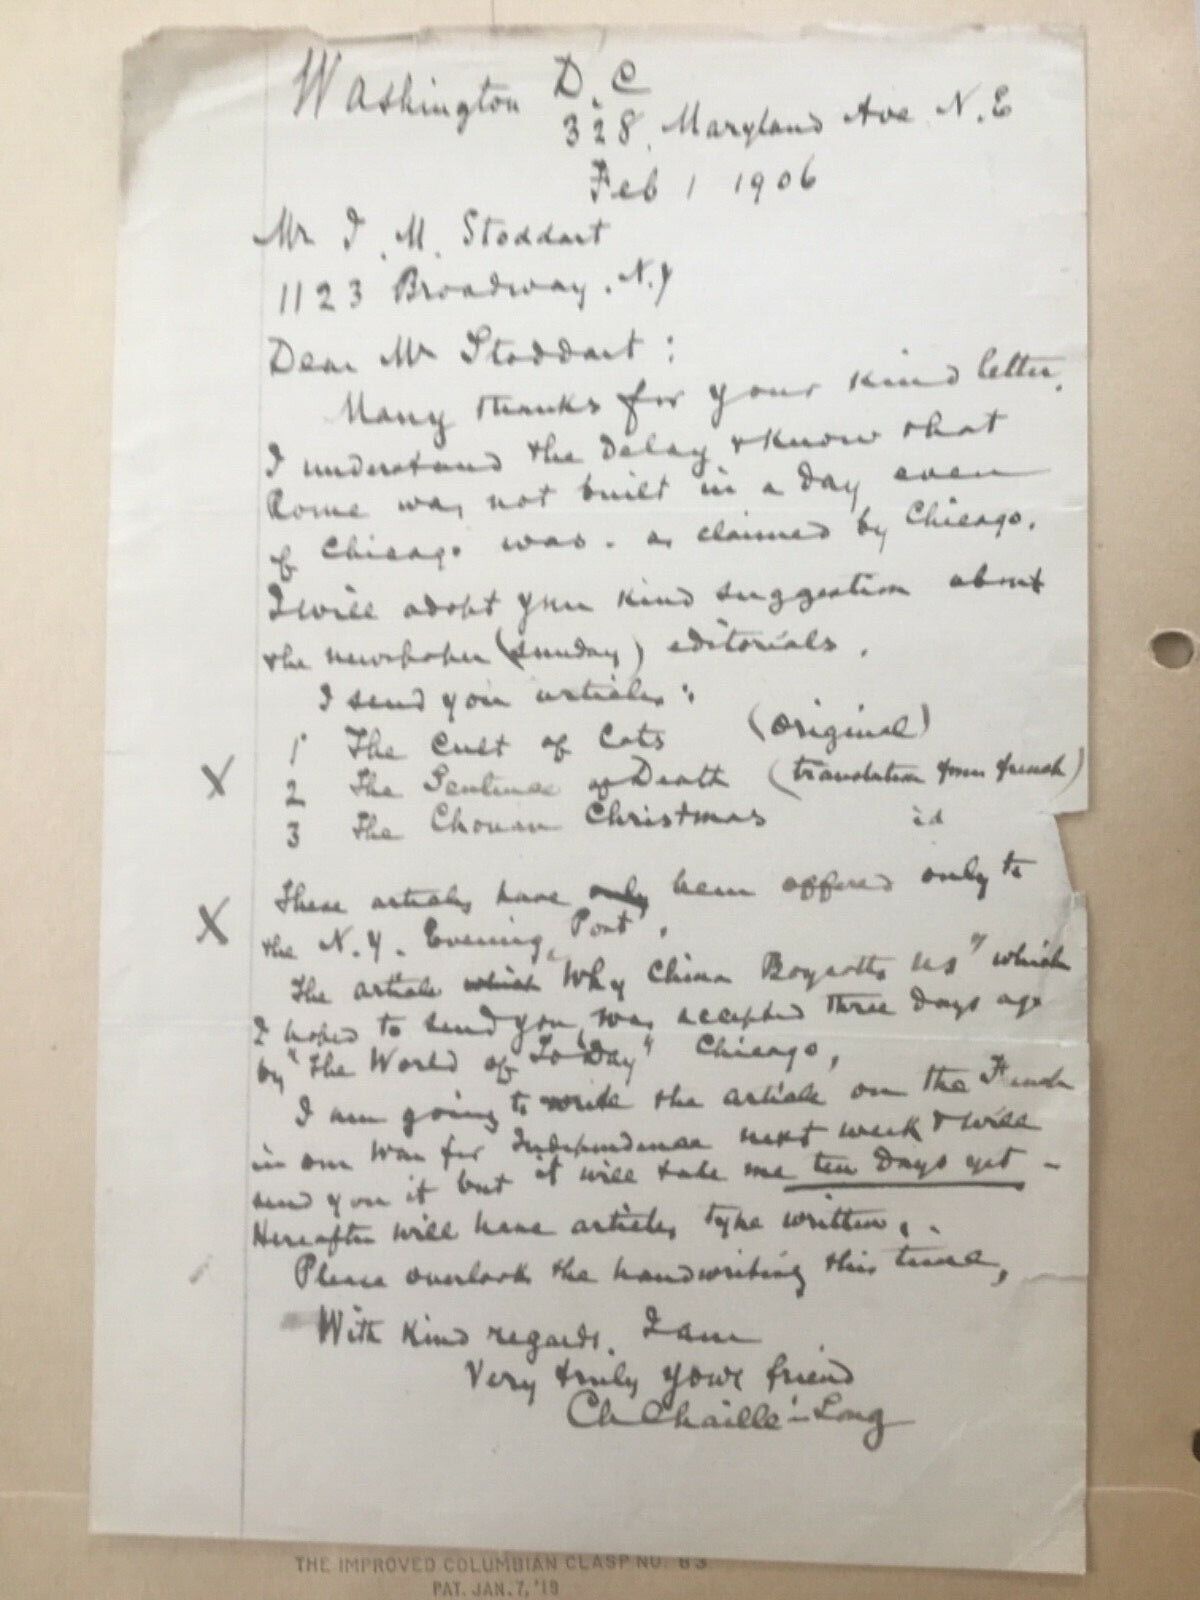 Washington D.C
328. Maryland Ave N.E
Feb 1 1906
Mr J. M. Stoddart
1123 Broadway. N.Y
Dear Mr Stoddart:
Many thanks for your kind letter.
I understand the delay & know that
Rome was not built in a day even
if Chicago was. as claimed by Chicago.
I will adopt your kind suggestion about
the newspaper (Sunday) editorials.
I send you articles:
1 The Cult of Cats (original)
X 2 The Sentence of Death (translation from french)
3 The Chouan Christmas id
These articles have only been offered only to
X the N.Y. Evening Post.
The article which "Why China Boycotts Us" which
I hoped to send you, was accepted three days ago
by "The World of To Day" Chicago,
I am going to write the article on the French
in our War for Independence next week & will
send you it but it will take me ten days yet -
Hereafter will have articles type written.
Please overlook the handwriting this time,
With kind regards. I am
Very truly your friend
Ch Chaillé-Long
THE IMPROVED COLUMBIAN CLASP NO. 63
PAT. JAN. 7, '19